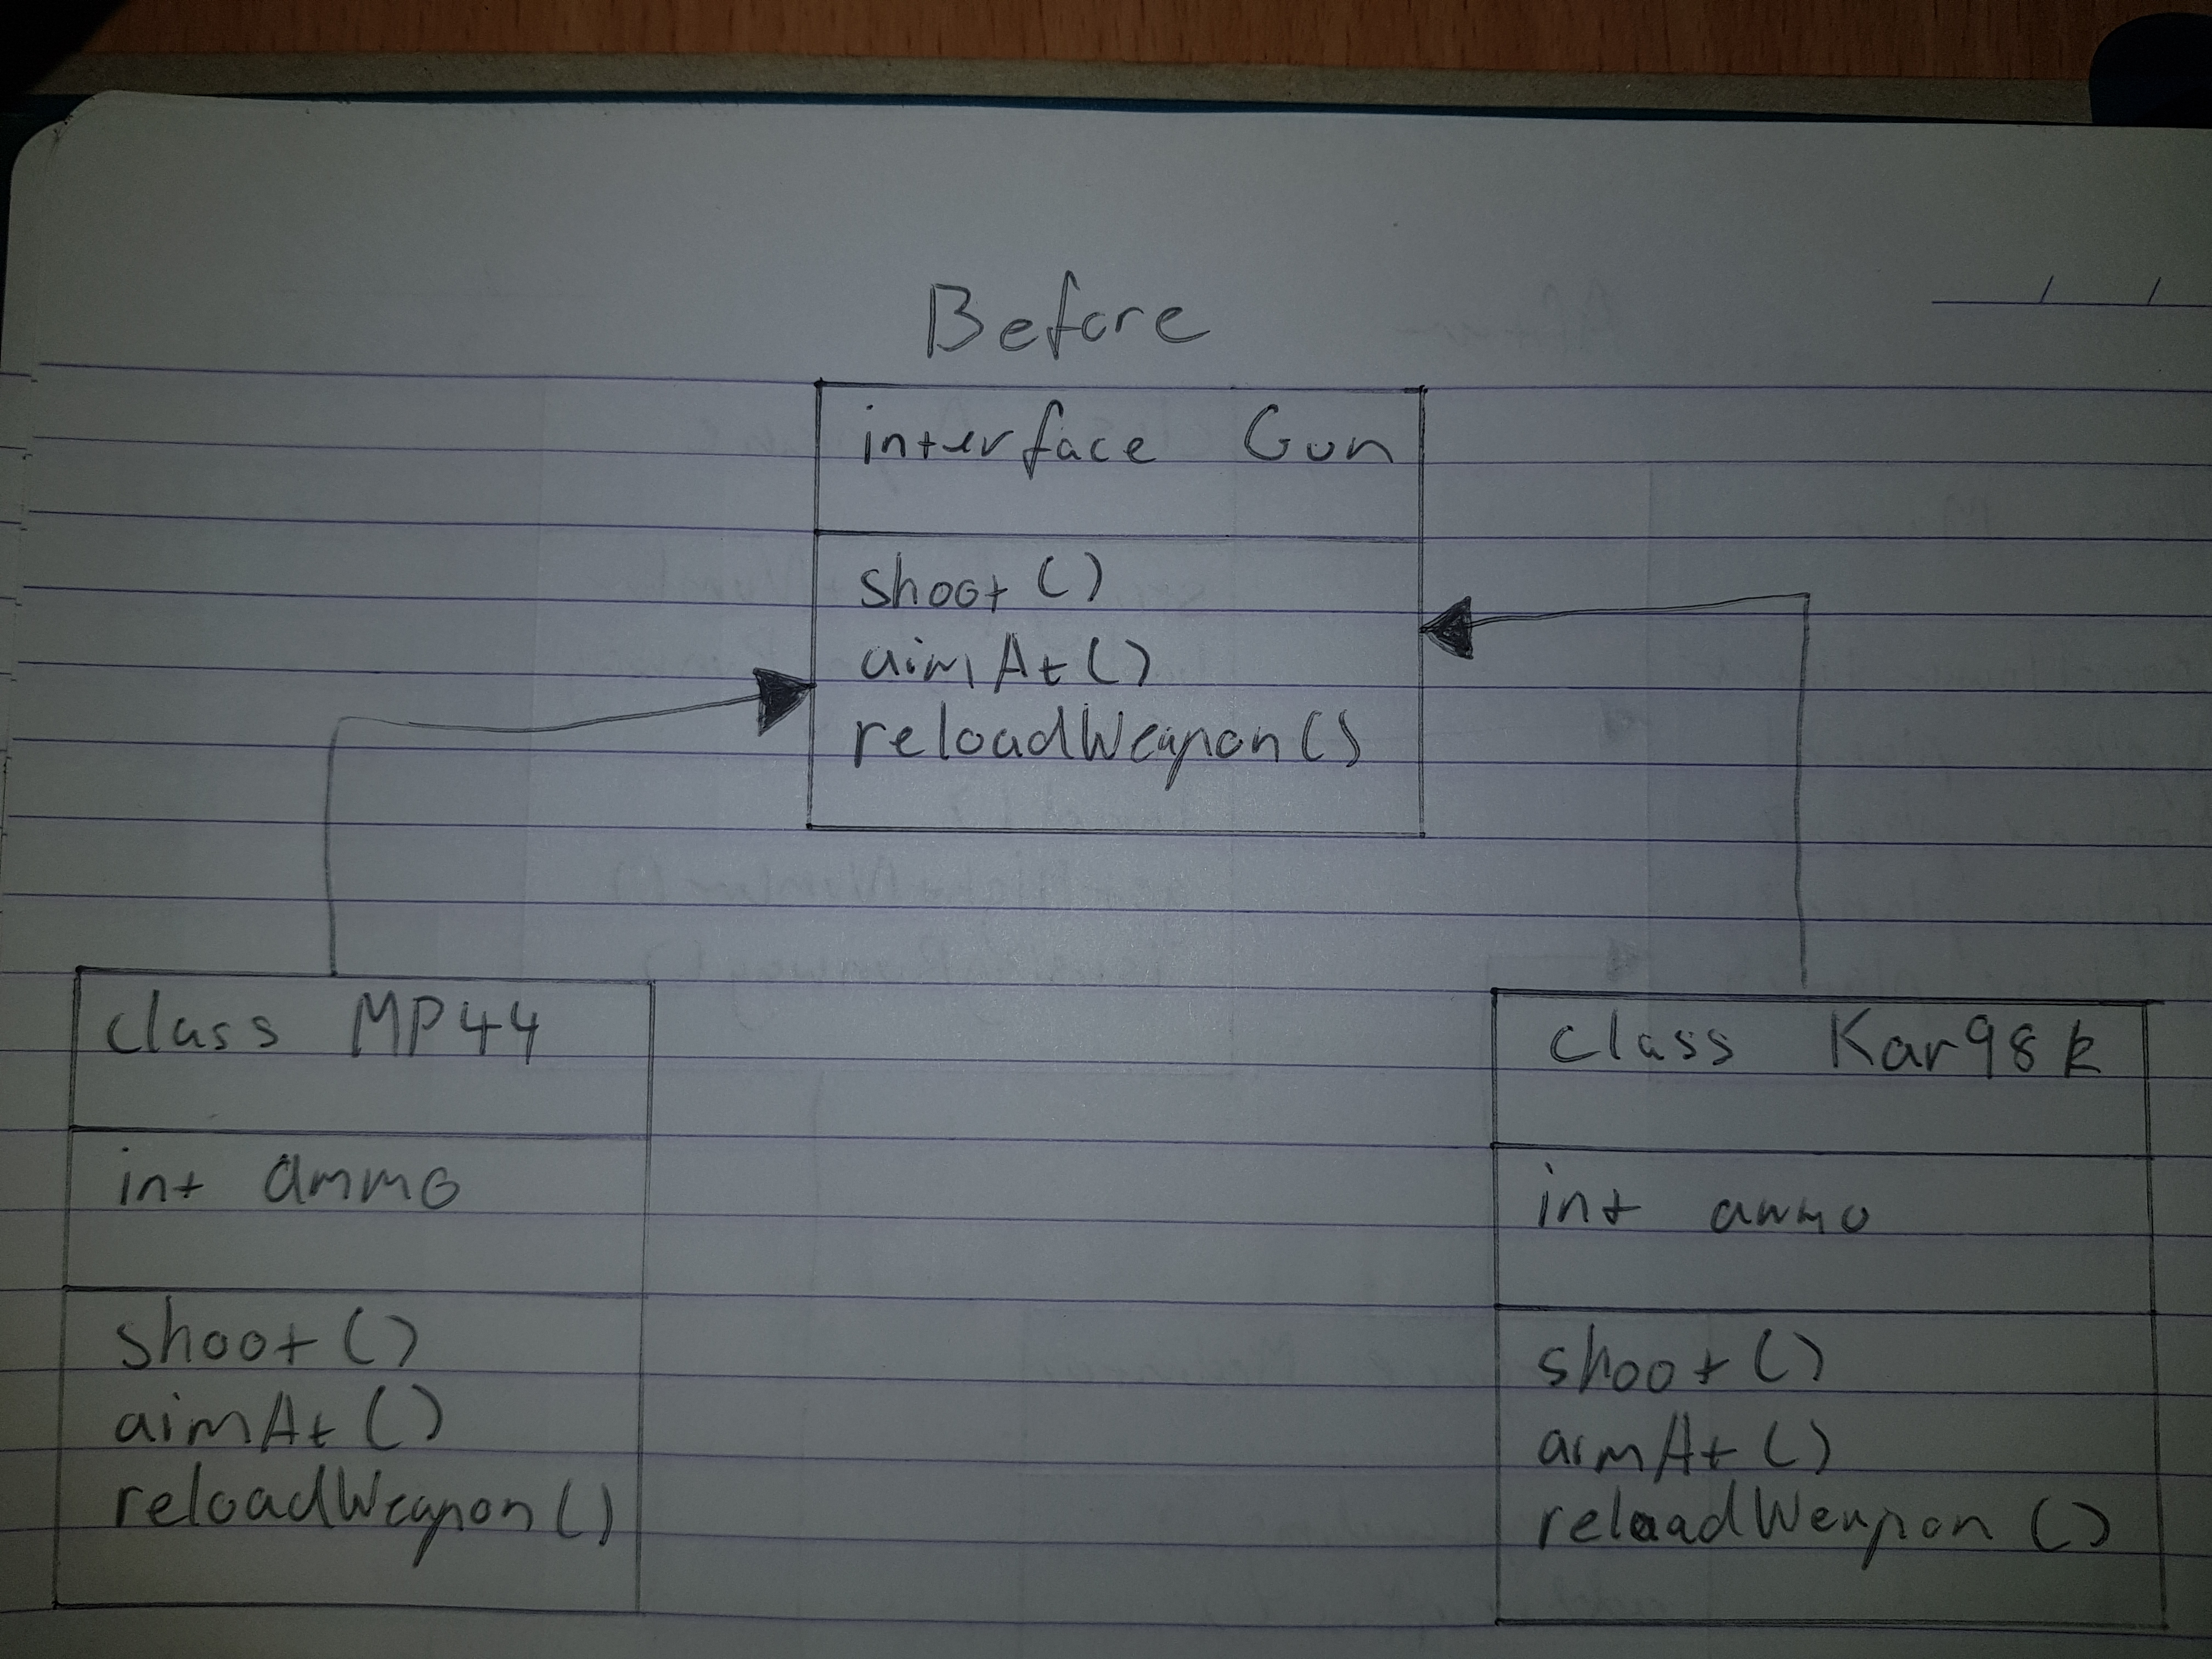 Before
interface Gun
shoot()
aimAt()
reloadWeapon()
class MP44
int ammo
shoot()
aimAt()
reloadWeapon()
class Kar98k
int ammo
shoot()
aimAt()
reloadWeapon()